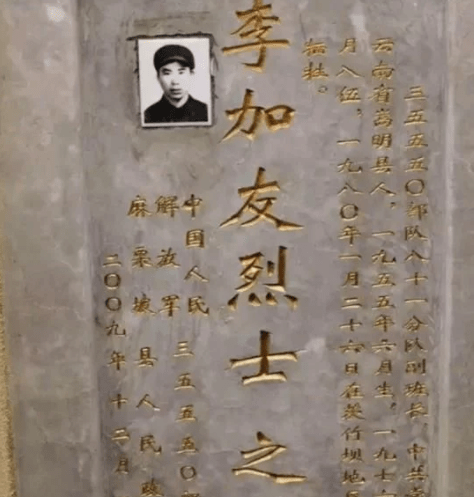 三五五五〇部队八十一分队副班长，中共
云南省嵩明县人，一九五五年六月生，一九七
月入伍，一九八〇年一月二十六日在茨竹坝地
牺牲。
李加友烈士之
中国人民
解放军
三五五五〇
麻栗坡县人民政
二〇〇九年十二月